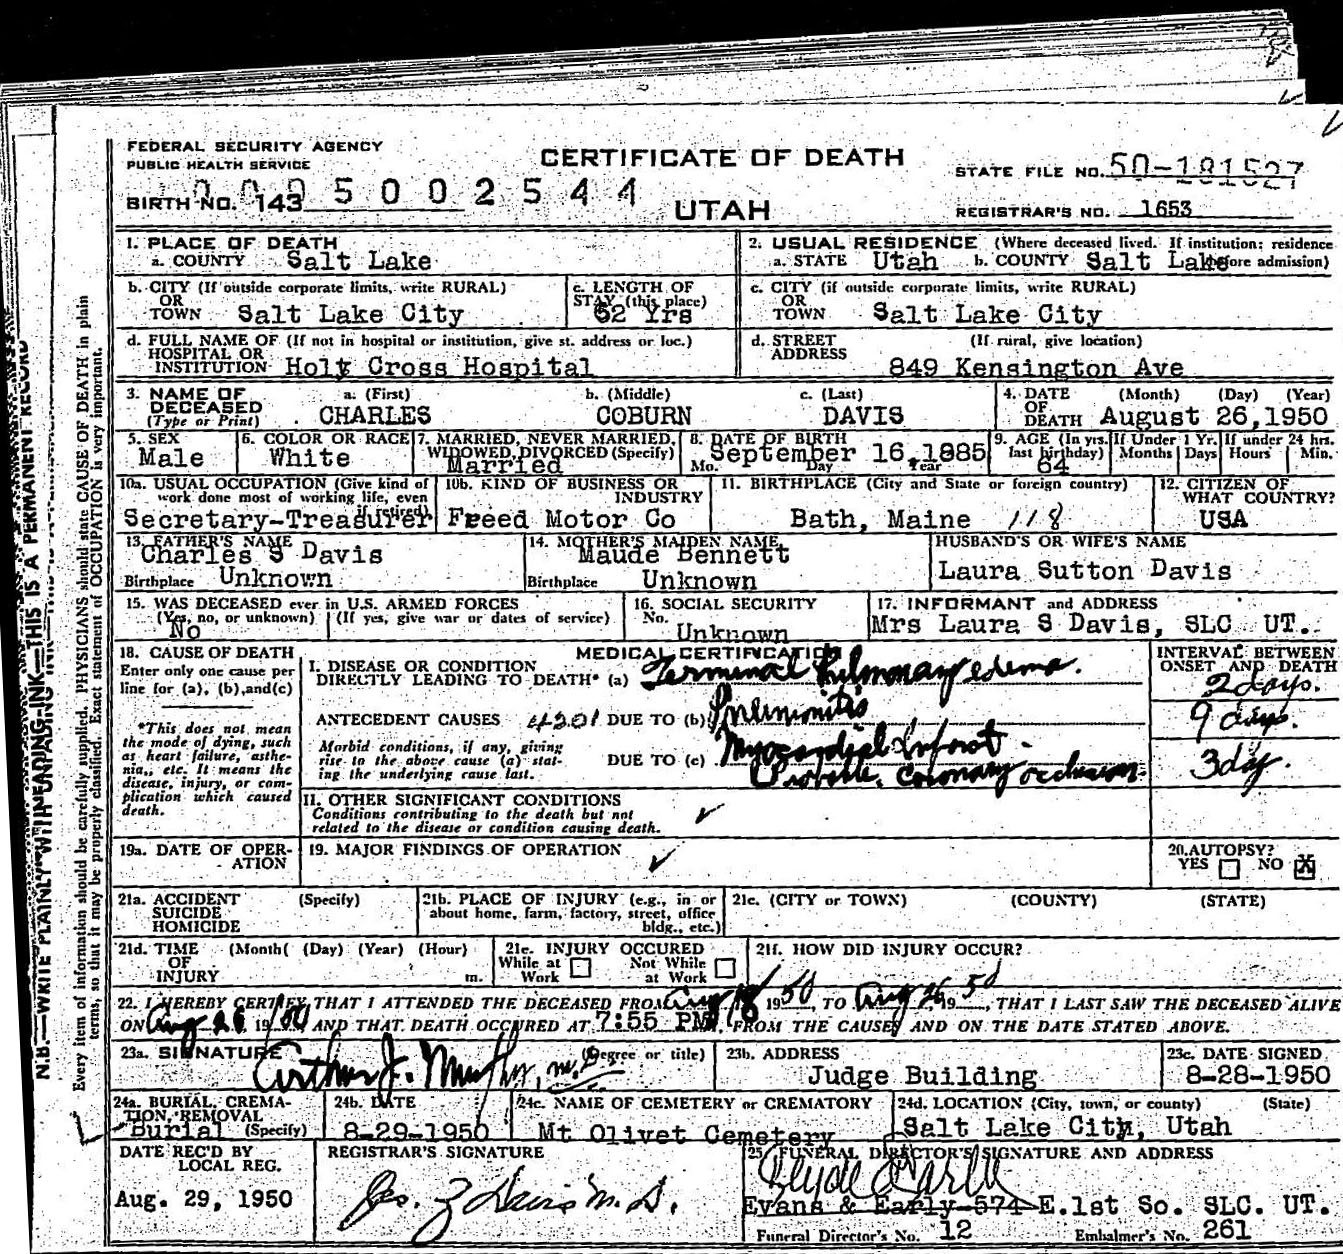 FEDERAL SECURITY AGENCY
PUBLIC HEALTH SERVICE
CERTIFICATE OF DEATH
STATE FILE NO. 50-181527
BIRTH NO. 143 5002544
UTAH
REGISTRAR'S NO. 1653
1. PLACE OF DEATH
a. COUNTY Salt Lake
2. USUAL RESIDENCE (Where deceased lived. If institution: residence before admission)
a. STATE Utah b. COUNTY Salt Lake
b. CITY (If outside corporate limits, write RURAL)
OR
TOWN Salt Lake City
c. LENGTH OF
STAY (this place)
52 Yrs
c. CITY (if outside corporate limits, write RURAL)
OR
TOWN Salt Lake City
d. FULL NAME OF (If not in hospital or institution, give st. address or loc.)
HOSPITAL OR
INSTITUTION Holy Cross Hospital
d. STREET (If rural, give location)
ADDRESS
849 Kensington Ave
3. NAME OF DECEASED
(Type or Print)
a. (First) b. (Middle) c. (Last)
CHARLES COBURN DAVIS
4. DATE OF DEATH (Month) (Day) (Year)
August 26,1950
5. SEX
Male
6. COLOR OR RACE
White
7. MARRIED, NEVER MARRIED,
WIDOWED, DIVORCED (Specify)
Married
8. DATE OF BIRTH
September 16,1885
Mo. Day Year
9. AGE (In yrs. last birthday)
64
If Under 1 Yr. If under 24 hrs.
Months Days Hours Min.
10a. USUAL OCCUPATION (Give kind of
work done most of working life, even
if retired)
Secretary-Treasurer
10b. KIND OF BUSINESS OR
INDUSTRY
Freed Motor Co
11. BIRTHPLACE (City and State or foreign country)
Bath, Maine 118
12. CITIZEN OF
WHAT COUNTRY?
USA
13. FATHER'S NAME
Charles S Davis
Birthplace Unknown
14. MOTHER'S MAIDEN NAME
Maude Bennett
Birthplace Unknown
HUSBAND'S OR WIFE'S NAME
Laura Sutton Davis
15. WAS DECEASED ever in U.S. ARMED FORCES
(Yes, no, or unknown) (If yes, give war or dates of service)
No
16. SOCIAL SECURITY
No.
Unknown
17. INFORMANT and ADDRESS
Mrs Laura S Davis, SLC UT.
18. CAUSE OF DEATH
Enter only one cause per
line for (a), (b),and(c)
*This does not mean
the mode of dying, such
as heart failure, asthe-
nia, etc. It means the
disease, injury, or com-
plication which caused
death.
MEDICAL CERTIFICATION
INTERVAL BETWEEN
ONSET AND DEATH
I. DISEASE OR CONDITION
DIRECTLY LEADING TO DEATH* (a) Terminal Pulmonary edema. 2 days.
ANTECEDENT CAUSES 4201 DUE TO (b) Pneumonitis 9 days.
Morbid conditions, if any, giving
rise to the above cause (a) stat-
ing the underlying cause last.
DUE TO (c) Myocardial Infarct.
Probable Coronary occlusion. 3 day.
II. OTHER SIGNIFICANT CONDITIONS
Conditions contributing to the death but not
related to the disease or condition causing death.
19a. DATE OF OPER-
ATION
19. MAJOR FINDINGS OF OPERATION
20. AUTOPSY?
YES NO X
21a. ACCIDENT (Specify)
SUICIDE
HOMICIDE
21b. PLACE OF INJURY (e.g., in or
about home, farm, factory, street, office
bldg., etc.)
21c. (CITY or TOWN) (COUNTY) (STATE)
21d. TIME (Month( (Day) (Year) (Hour)
OF
INJURY m.
21e. INJURY OCCURED
While at Work Not While at Work
21f. HOW DID INJURY OCCUR?
22. I HEREBY CERTIFY THAT I ATTENDED THE DECEASED FROM Aug 18 1950, TO Aug 26, 1950, THAT I LAST SAW THE DECEASED ALIVE
ON Aug 26 1950 AND THAT DEATH OCCURED AT 7:55 PM, FROM THE CAUSES AND ON THE DATE STATED ABOVE.
23a. SIGNATURE (Degree or title)
Arthur J. Murphy, M.D.
23b. ADDRESS
Judge Building
23c. DATE SIGNED
8-28-1950
24a. BURIAL, CREMA-
TION, REMOVAL
Burial (Specify)
24b. DATE
8-29-1950
24c. NAME OF CEMETERY or CREMATORY
Mt Olivet Cemetery
24d. LOCATION (City, town, or county) (State)
Salt Lake City, Utah
DATE REC'D BY
LOCAL REG.
Aug. 29, 1950
REGISTRAR'S SIGNATURE
25 FUNERAL DIRECTOR'S SIGNATURE AND ADDRESS
Evans & Early-574 E.1st So. SLC. UT.
Funeral Director's No. 12 Embalmer's No. 261
N.B.—WRITE PLAINLY WITH UNFADING INK—THIS IS A PERMANENT RECORD
Every item of information should be carefully supplied. PHYSICIANS should state CAUSE OF DEATH in plain
terms, so that it may be properly classified. Exact statement of OCCUPATION is very important.